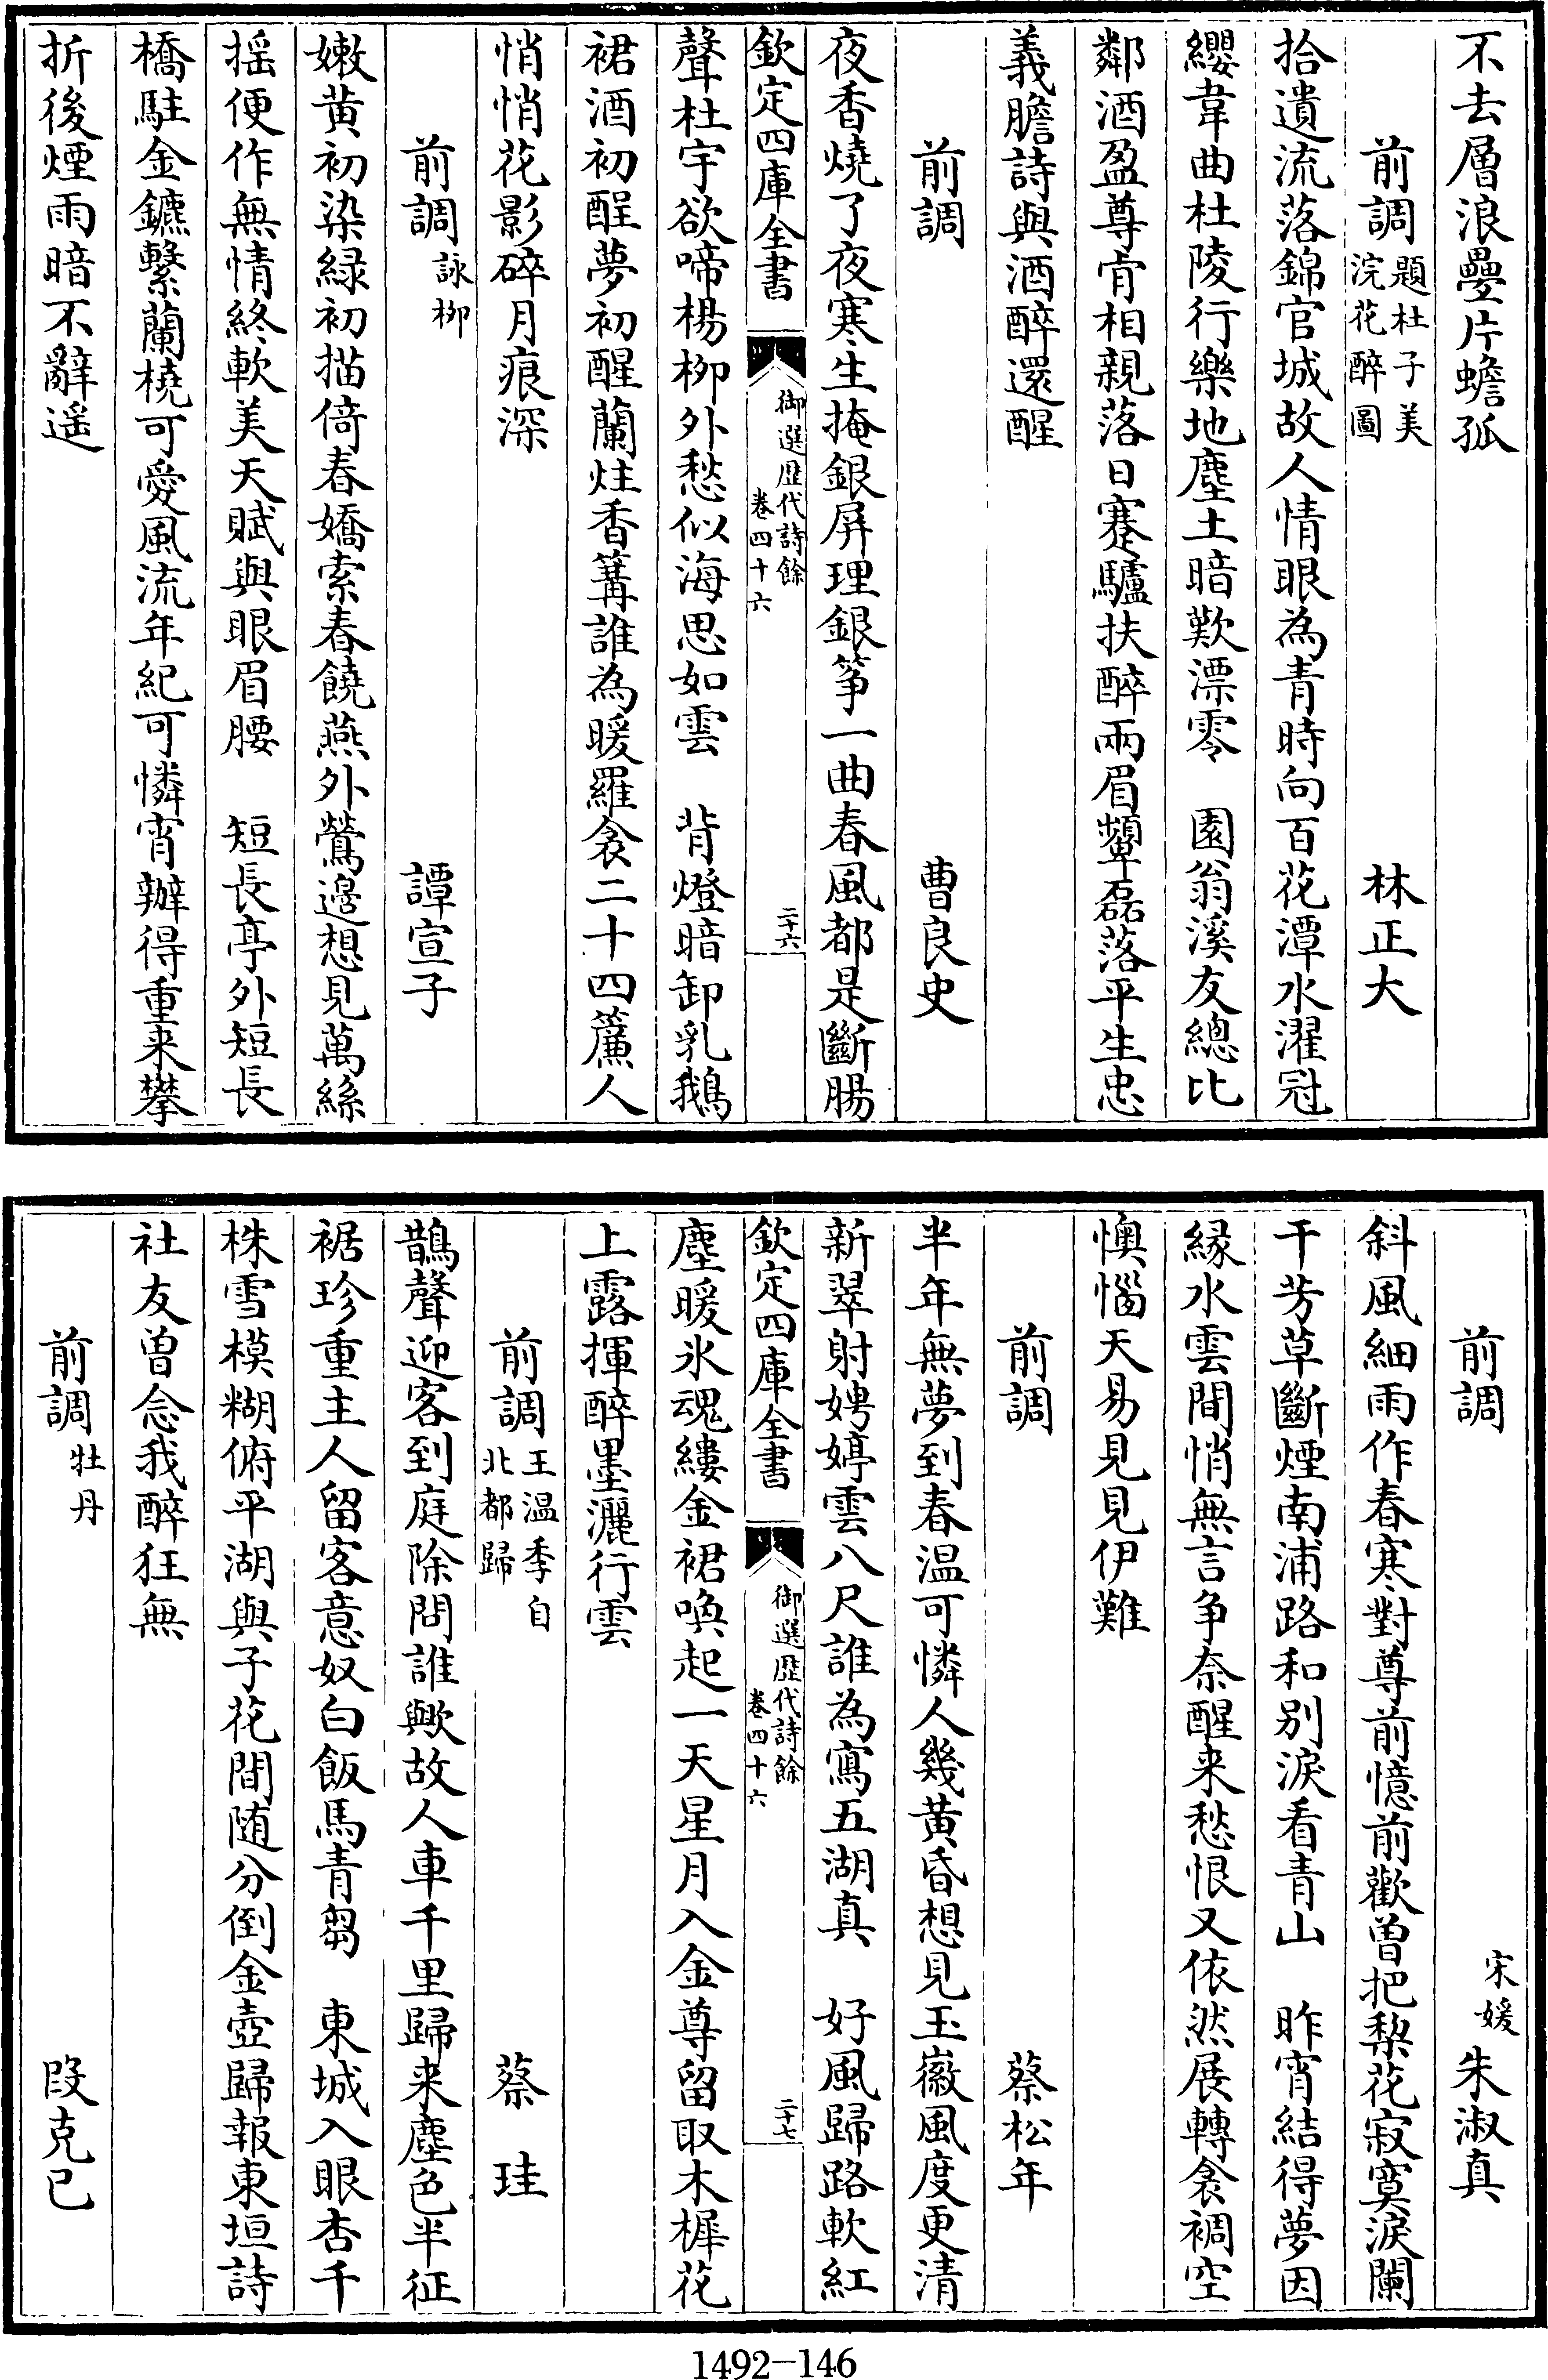 不去層浪疊片蟾孤
前調 題杜子美浣花醉圖 林正大
拾遺流落錦官城故人情眼為青時向百花潭水濯冠
纓韋曲杜陵行樂地塵土暗歎漂零　園翁溪友總比
鄰酒盈尊肯相親落日蹇驢扶醉兩眉顰磊落平生忠
義膽詩與酒醉還醒
前調 曹良史
夜香燒了夜寒生掩銀屏理銀箏一曲春風都是斷腸
欽定四庫全書 御選歷代詩餘 卷四十六 二十六
聲杜宇欲啼楊柳外愁似海思如雲　背燈暗卸乳鵝
裙酒初醒夢初醒蘭炷香篝誰為暖羅衾二十四簾人
悄悄花影碎月痕深
前調 詠柳 譚宣子
嫩黃初染綠初描倚春嬌索春饒燕外鶯邊想見萬絲
搖便作無情終軟美天賦與眼眉腰　短長亭外短長
橋駐金鑣繫蘭橈可愛風流年紀可憐宵辦得重来攀
折後煙雨暗不辭遥
前調 宋媛 朱淑真
斜風細雨作春寒對尊前憶前歡曾把梨花寂寞淚闌
干芳草斷煙南浦路和别淚看青山　昨宵結得夢因
緣水雲間悄無言争奈醒来愁恨又依然展轉衾裯空
懊惱天易見見伊難
前調 蔡松年
半年無夢到春温可憐人幾黄昏想見玉徽風度更清
新翠射娉婷雲八尺誰為寫五湖真　好風歸路軟紅
欽定四庫全書 御選歷代詩餘 卷四十六 二十七
塵暖氷魂縷金裙喚起一天星月入金尊留取木樨花
上露揮醉墨灑行雲
前調 王温季自北都歸 蔡珪
鵲聲迎客到庭除問誰歟故人車千里歸来塵色半征
裾珍重主人留客意奴白飯馬青芻　東城入眼杏千
株雪模糊俯平湖與子花間随分倒金壺歸報東垣詩
社友曽念我醉狂無
前調 牡丹 段克己
1492-146